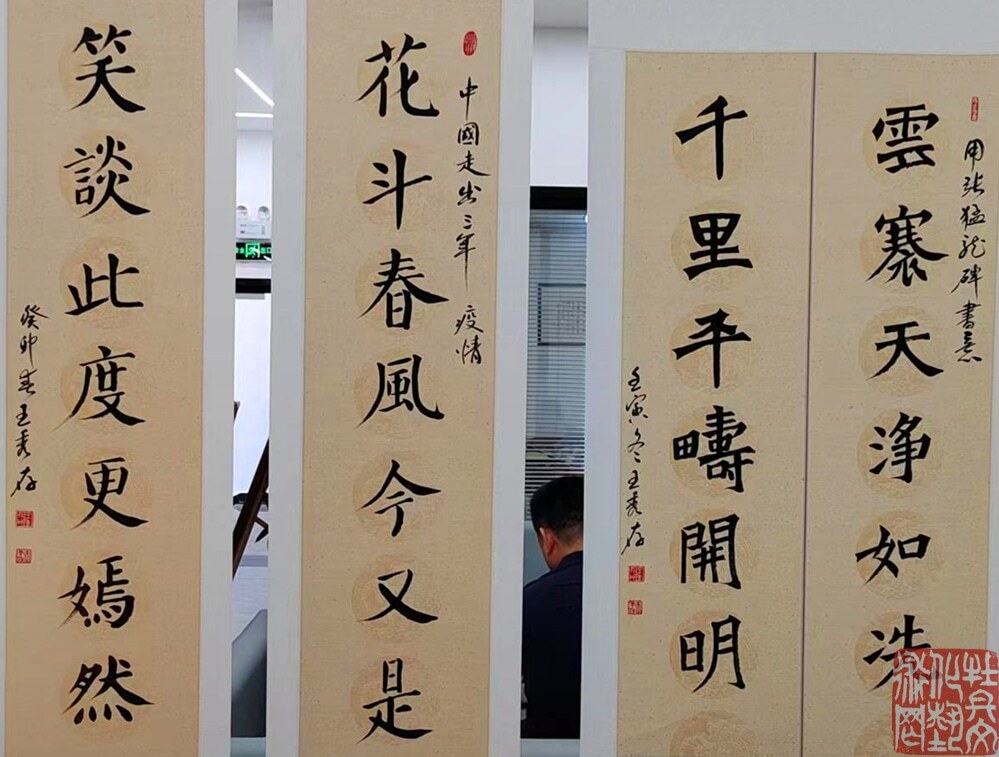 用张猛龙碑書意
雲褰天净如洗
千里平疇開明
壬寅冬王秀存
中國走出三年疫情
花斗春風今又是
笑談此度更嫣然
癸卯春王秀存